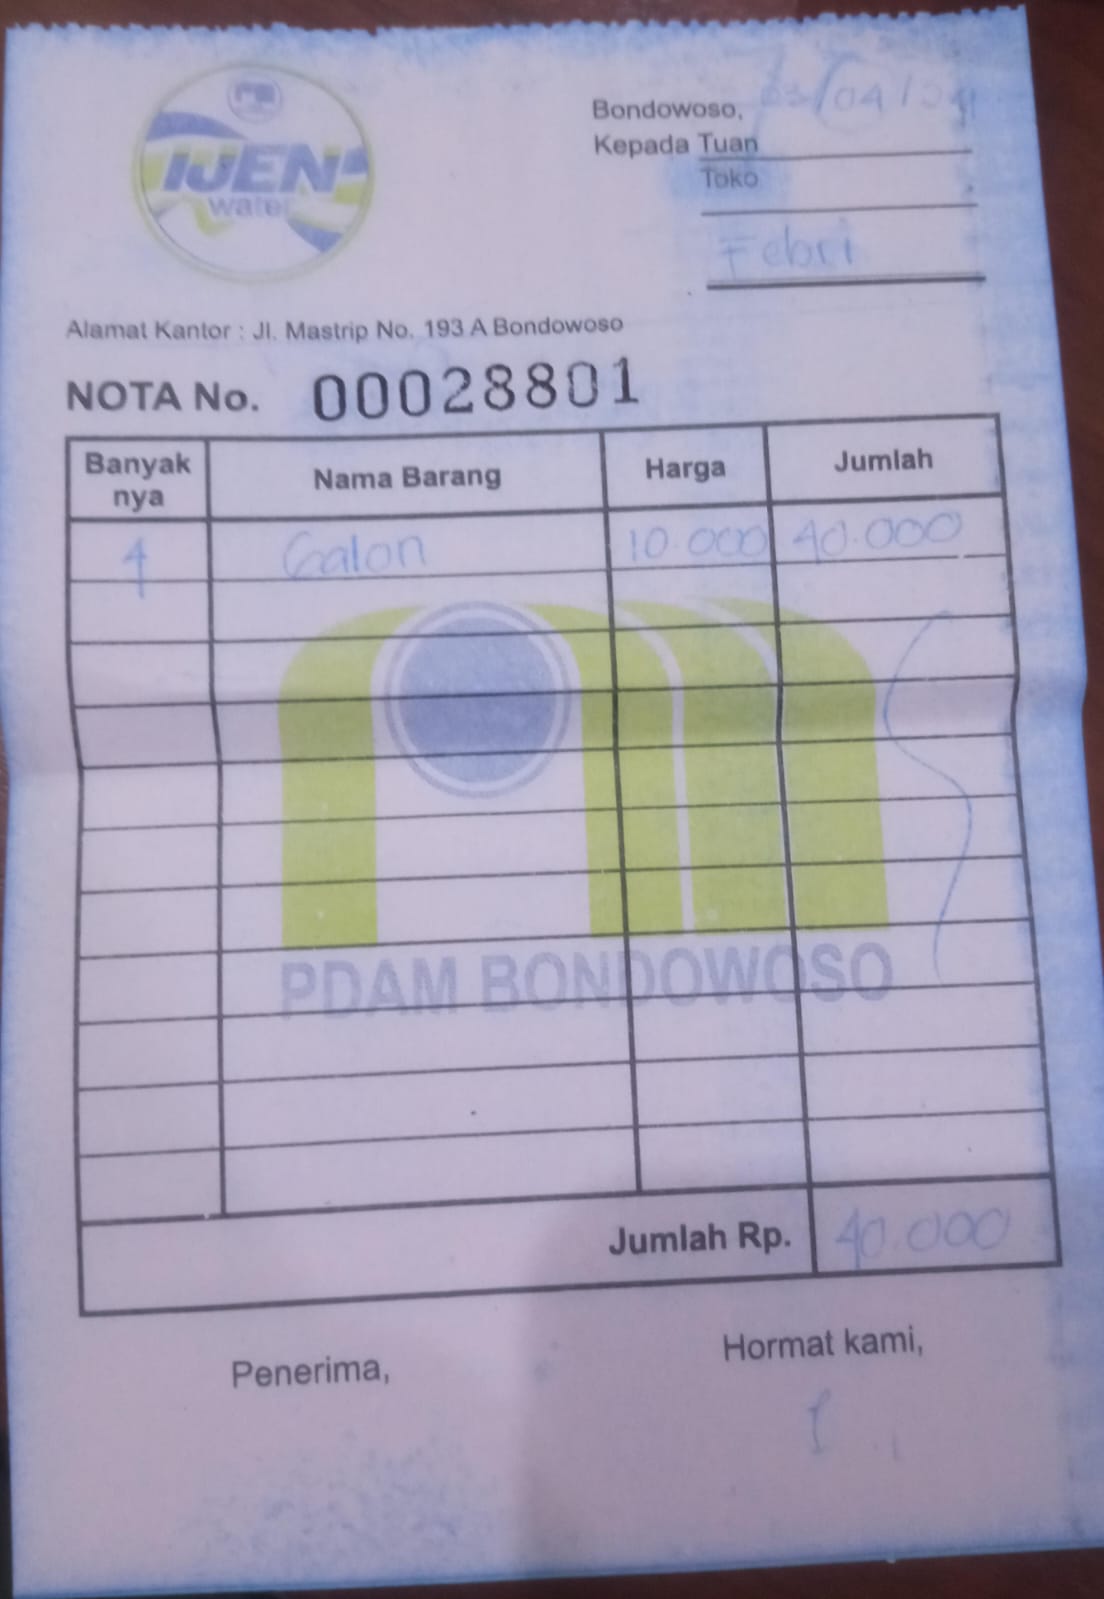 IJEN
water
Bondowoso, 03/04/24
Kepada Tuan
Toko
Febri
Alamat Kantor : Jl. Mastrip No. 193 A Bondowoso
NOTA No. 00028801
Banyak nya Nama Barang Harga Jumlah
4 Galon 10.000 40.000
PDAM BONDOWOSO
Jumlah Rp. 40.000
Penerima,
Hormat kami,